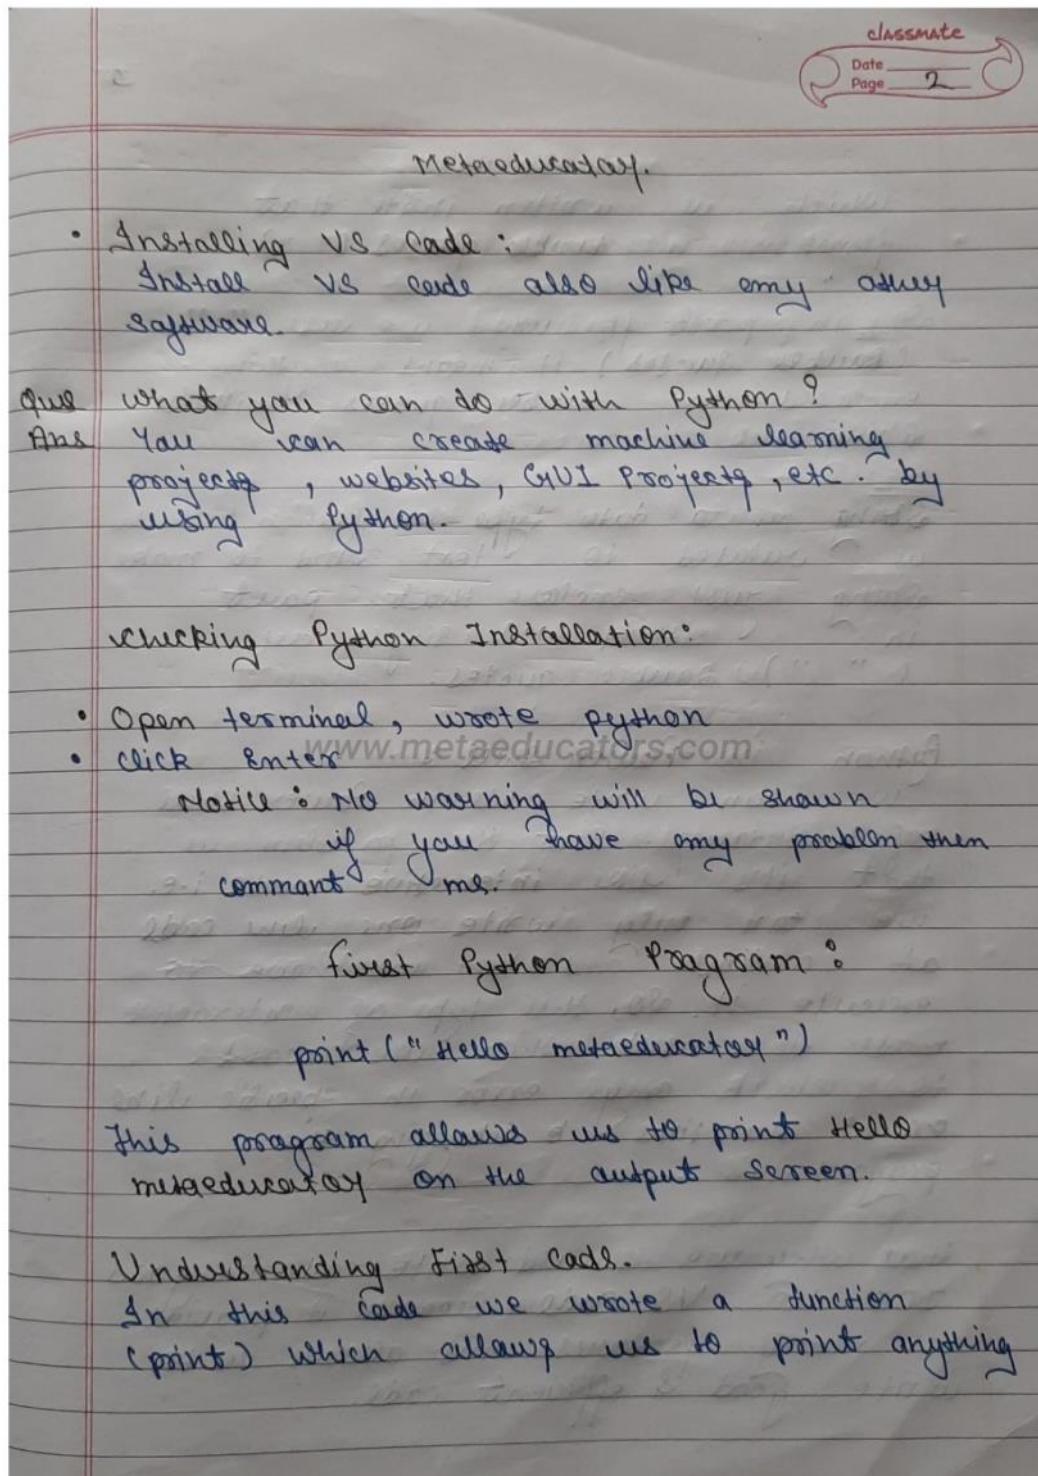 classmate
Date
Page 2
Metaeducator.
• Installing VS Code :
Install VS code also like any other
software.
Que What you can do with Python ?
Ans You can create machine learning
projects , websites, GUI Projects , etc. by
using Python.
Checking Python Installation:
• Open terminal, wrote python
www.metaeducators.com
• Click Enter
Notice : No warning will be shown
if you have any problem then
commant me.
First Python Program :
print ("Hello metaeducator")
This program allows us to print Hello
metaeducator on the output screen.
Understanding First Code.
In this Code we wrote a function
(print) which allows us to print anything